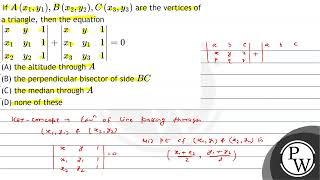 If A (x₁, y₁), B (x₂, y₂), C (x₃, y₃) are the vertices of
a triangle, then the equation
| x y 1 | | x y 1 |
| x₁ y₁ 1 | + | x₁ y₁ 1 | = 0
| x₂ y₂ 1 | | x₃ y₃ 1 |
(A) the altitude through A
(B) the perpendicular bisector of side BC
(C) the median through A
(D) none of these
Key-concept → Eqⁿ of line passing through
(x₁, y₁) & (x₂, y₂)
| x y 1 |
| x₁ y₁ 1 | = 0
| x₂ y₂ 1 |
Mid pt of (x₁, y₁) & (x₂, y₂) is
( x₁+x₂ / 2 , y₁+y₂ / 2 )
| a b c |
| x y z |
| p q r |
+
| a b c
PW